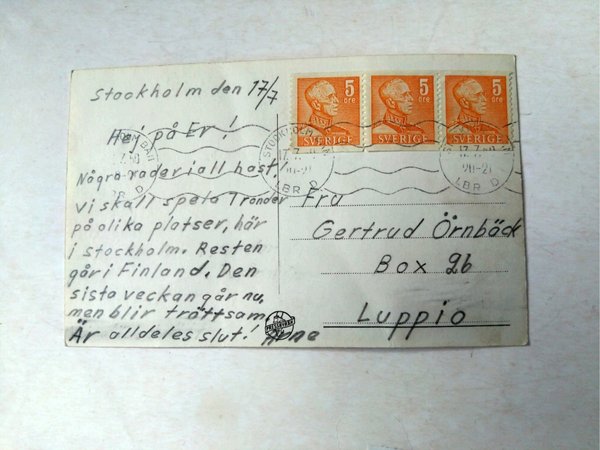 Stockholm den 17/7
5 öre SVERIGE
5 öre SVERIGE
5 öre SVERIGE
Hej på Er!
Några rader i all hast!
Vi skall spela Tronder
på olika platser, här
i stockholm. Resten
går i Finland. Den
sista veckan går nu,
men blir tröttsam.
Är alldeles slut!
Fru
Gertrud Örnbäck
Box 96
Luppio
STOCKHOLM
17.7
LBR D
LBR D